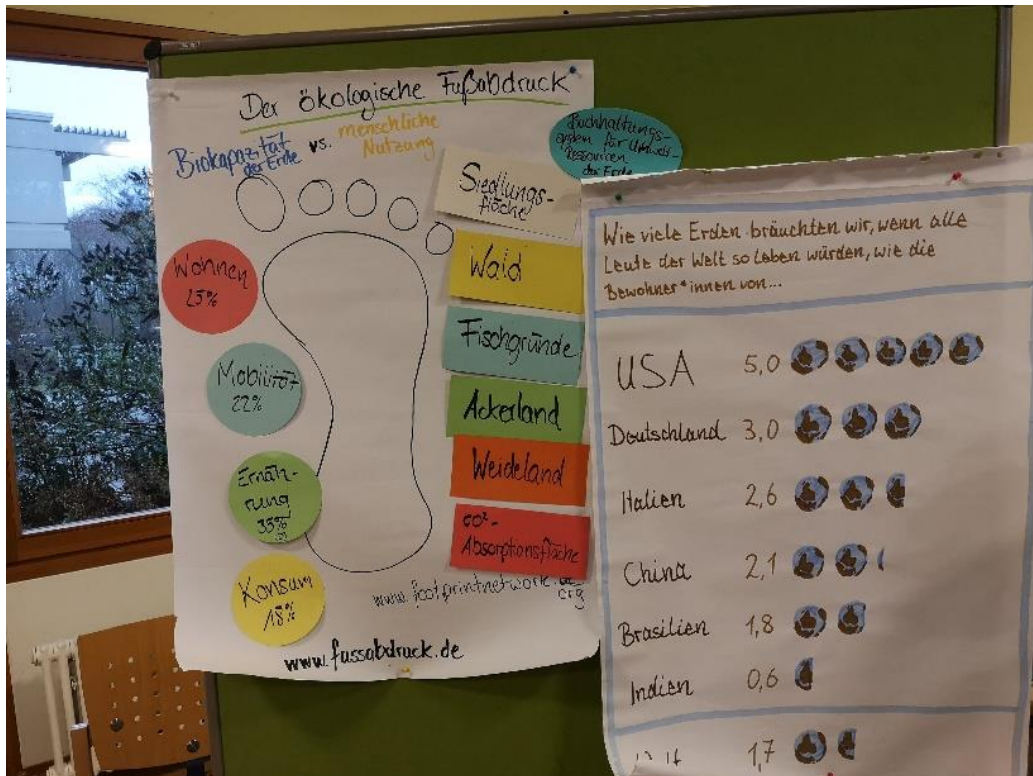 Der ökologische Fußabdruck
Biokapazität
der Erde
vs.
menschliche
Nutzung
Buchhaltungs-
system für Umwelt-
Ressourcen
der Erde
Wohnen
25%
Mobilität
22%
Ernäh-
rung
35%
Konsum
18%
Siedlungs-
fläche
Wald
Fischgründe
Ackerland
Weideland
CO²-
Absorptionsfläche
www.footprintnetwork.
org
www.fussabdruck.de
Wie viele Erden bräuchten wir, wenn alle
Leute der Welt so leben würden, wie die
Bewohner*innen von...
USA 5,0
Deutschland 3,0
Italien 2,6
China 2,1
Brasilien 1,8
Indien 0,6
1,7